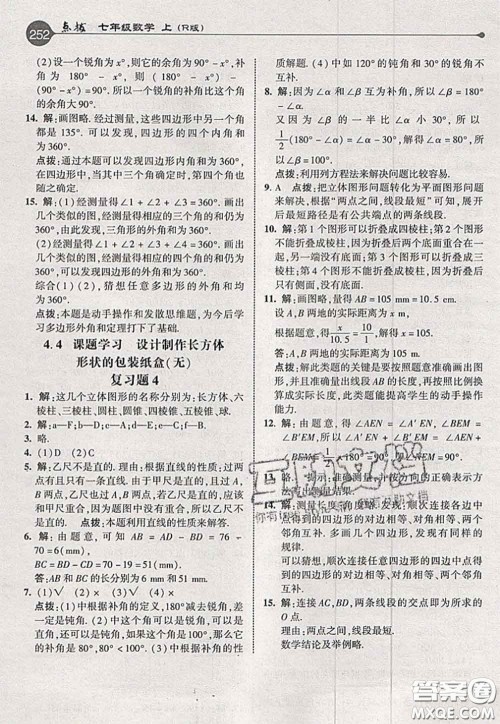 252 点拨 七年级数学 上(R版)
(2)设一个锐角为x°,则它的余角为
90°-x°,补角为180°-x°,则
180°-x°>90°-x°,所以这个角的补角
比它的余角大90°.
14. 解:画图略.经过测量,这些四边形中另一个
角都是135°.可以发现,四边形的四个内角和
为360°.
点拨:通过本题可以发现四边形的内角和为
360°,当其中三个角确定时,第四个角也随之
确定.
15. (1)经测量得∠1+∠2+∠3=360°.画出
几个类似的图,经测量得相应的三个角的和仍为
360°,由此发现,三角形的外角和为360°.
(2)经测量得∠1+∠2+∠3+∠4=360°.画出
几个类似的图,经测量得相应的四个角的和仍为
360°,可以发现四边形的外角和为360°.
综合(1)(2)猜想:多边形的外角和为360°.
点拨:本题是动手操作和发散思维题,为今后学
习多边形外角和定理打下了基础.
4.4 课题学习 设计制作长方体
形状的包装纸盒(无)
复习题4
1. 解:这几个立体图形的名称分别为:长方体、六
棱柱、三棱柱、圆柱、圆锥、四棱锥、五棱锥、球.
2. 解:a—F;b—D;c—E;d—A;e—B;f—C.
3. 略.
4. (1)D (2)C
5. 解:乙尺不是直的.因为由直线的性质知:过两
点有且只有一条直线.而由于甲尺是直的,且过
A,B两点,乙尺也过A,B两点,乙尺本应该
和甲尺重合,因为题图中没有重合,所以乙尺不
是直的.
点拨:本题利用直线的性质来解答.
6. 解:由题意,可知AB=AD-BD=76-
70=6(mm),
BC=BD-CD=70-19=51(mm).
答:AB和BC的长分别为6 mm和51 mm.
7. (1)√ (2)× (3)× (4)√
点拨:(1)中根据补角的定义,180°减去锐角,差
一定是钝角.(2)中一个角的补角可以是钝角,
可以是直角,还可以是锐角,如60°的补角是
120°,90°的补角是90°,100°的补角是80°.
(3)中根据补角的性质:如果两个角是同一个角
的补角,那么它们相等.所以这两个角没有互补的
性质解题.(4)中如130°和50°,钝角和锐角
互补.
8. 解:因为∠α和∠β互补,所以∠α=180°-∠β.
又因为∠β的一半比∠α小30°,所以
1/2(180°-∠α)=∠α-30°,解得∠α=80°,所
以∠β=100°.
点拨:利用列方程法来解决问题比较容易.
9. A 点拨:把立体图形问题转化为平面图形问题
来解决,根据“两点之间,线段最短”可知,展开
后最短路径是有公共端点的两条线段.
10. 解:第1个图形可以折叠成四棱柱;第2个图形
不能折叠成五棱柱,因为折叠后两个底面重合在一
起,另一端没有底面;第3个图形可以折叠成三
棱柱;第4个图形不能折叠成三棱柱,因为折叠后
没有底面.
11. 解:经测量,题图中线段AB=105 mm=10.5 cm.
设A,B两地的实际距离为x m,
根据题意,得10.5/x=10/1,解得x=105.
答:A,B两地的实际距离为105 m.
点拨:解此题的关键是要按照题意准确画出图
形,由图形准确测量出线段AB的长,按照比例尺
求出AB的实际距离.此题能提高学生的动手操作
能力.
12. 解:由题意,得∠AEN=∠A′EN,∠BEM
=∠B′EM,所以∠NEM=∠A′EN+∠B′EM
=1/2×180°=90°.
13. 略.
14. 解:测量长度、角度略.发现:顺次连接各四
边形中点得到的四边形的对边相等、对角相等、两个
邻角互补.对于其他任意四边形,也能发现类似
的规律.
可以归纳出:顺次连接任意四边形的四边中点
得到的四边形的对边相等、对角相等、两个邻角
互补.
15. 解:连接AC,BD,两条线段的交点即为所求的
O点.
理由:两点之间,线段最短.
数学结论及举例略.
互助文档
答案圈
MXQE.COM